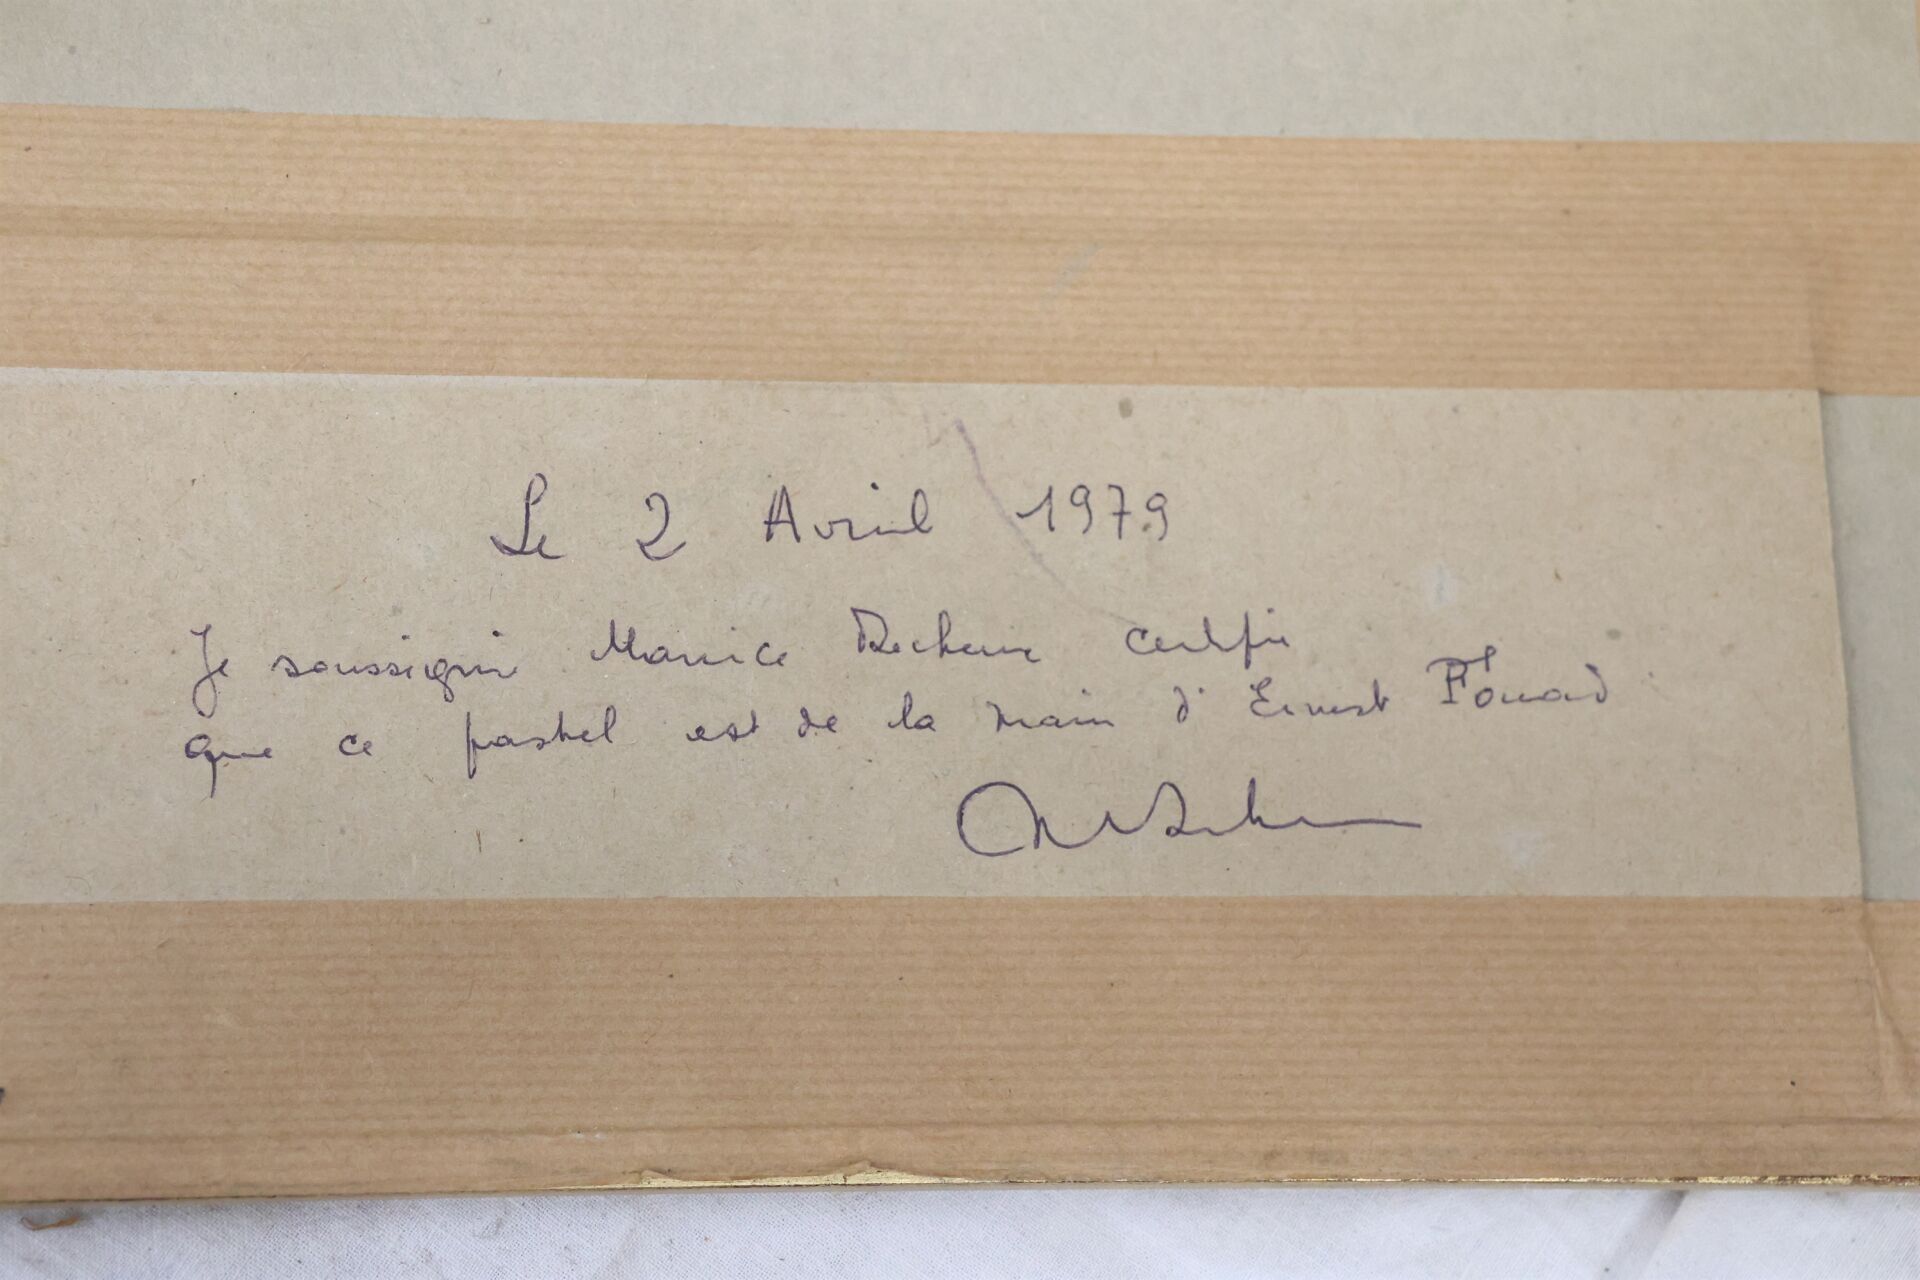 Le 2 Avril 1979
Je soussigné Maurice certifie
que ce pastel est de la main d'Ernest Fouard